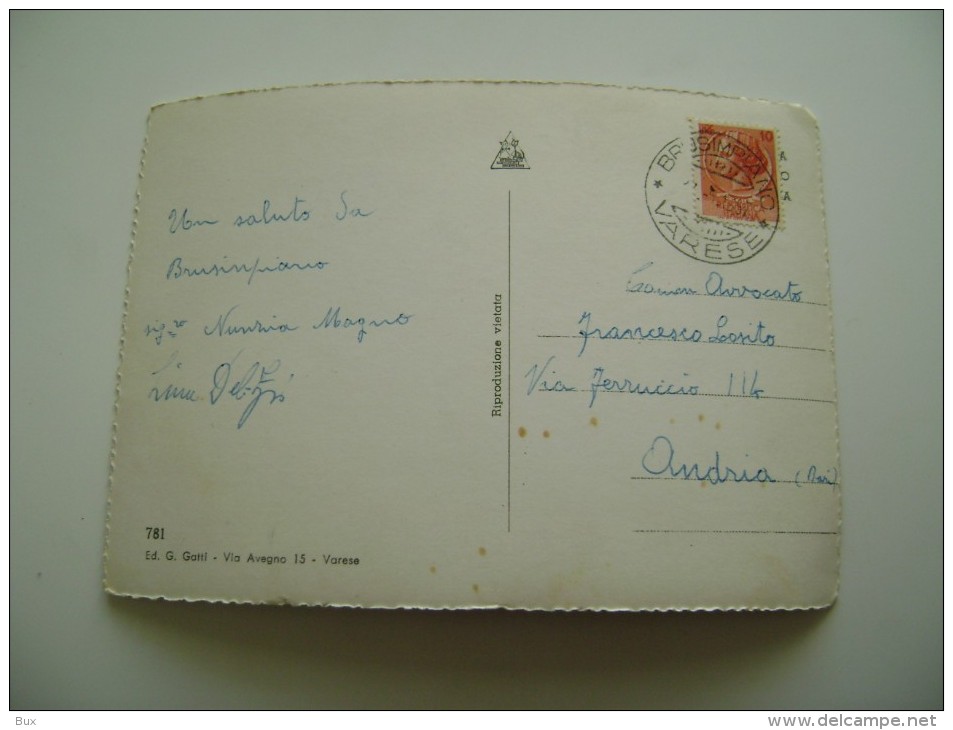 Un saluto da
Brusimpiano
sig.ra Nunzia Magno
781
Ed. G. Gatti - Via Avegno 15 - Varese
Riproduzione vietata
10
BRUSIMPIANO
* VARESE *
Avvocato
Francesco Losito
Via Ferruccio 114
Andria (Bari)
Bux
www.delcampe.net